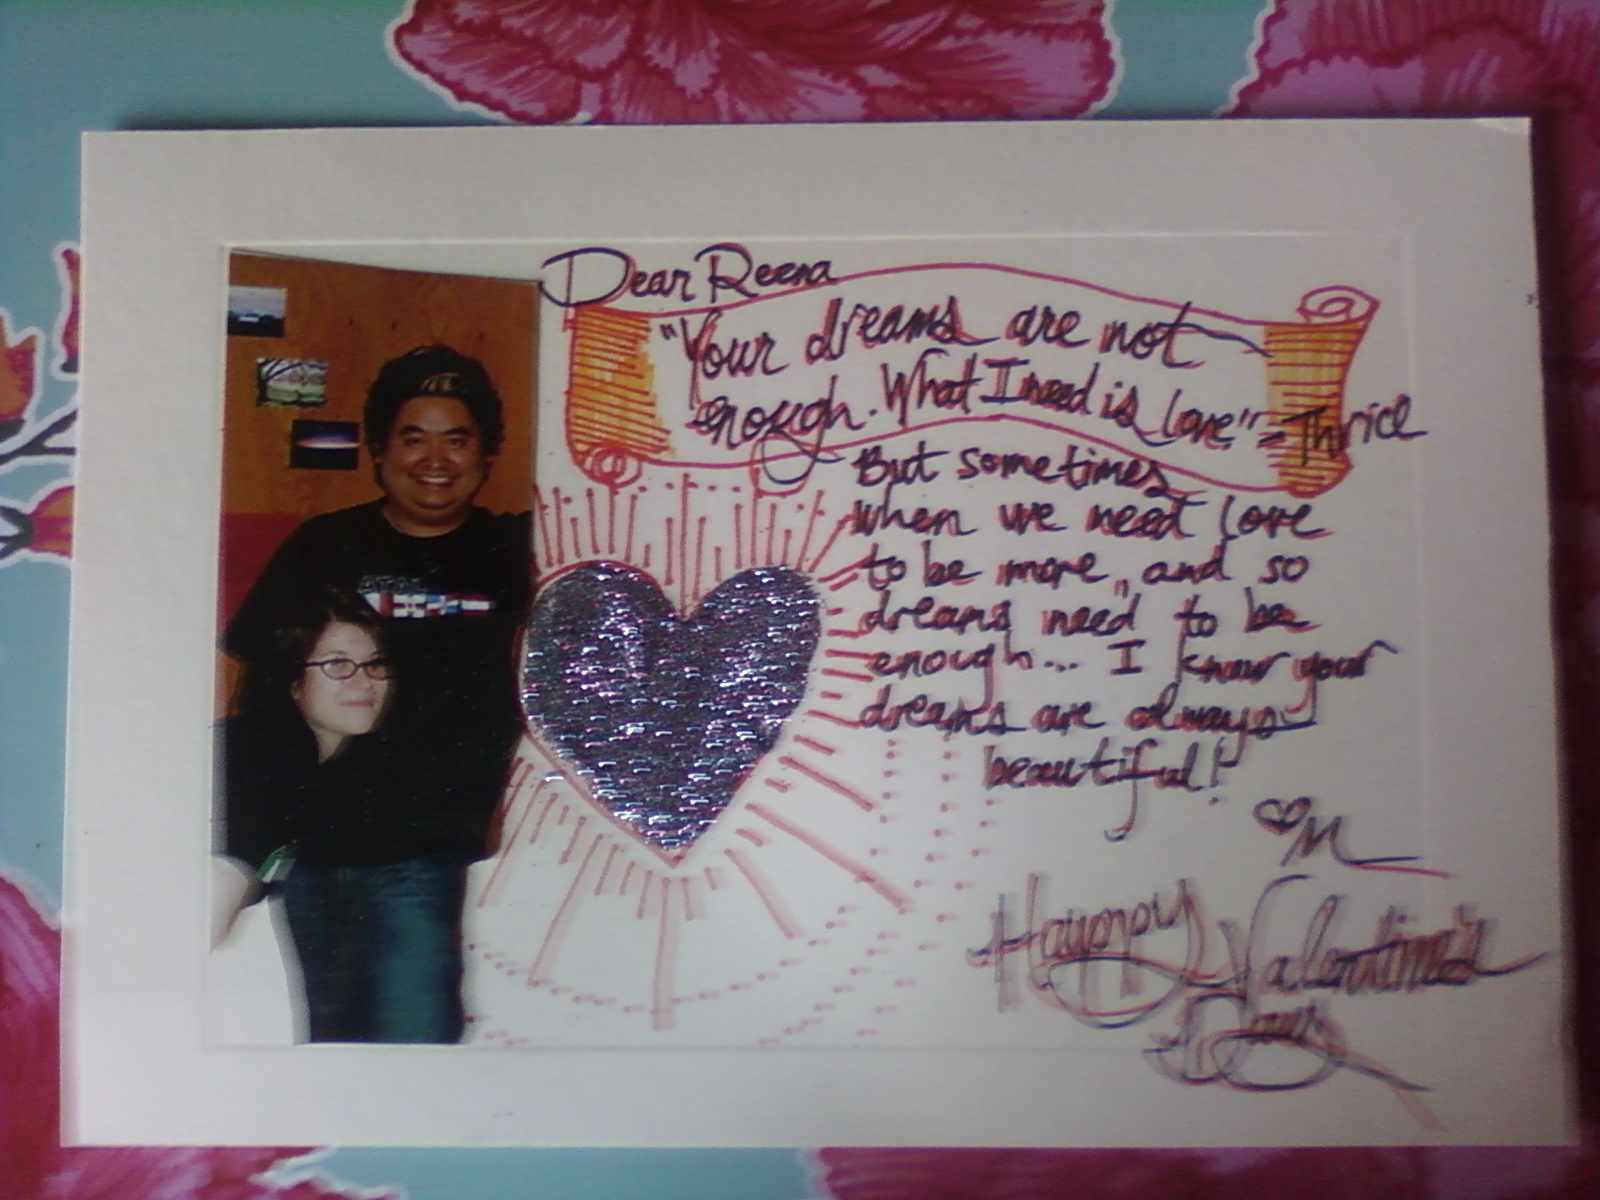 Dear Reena
"Your dreams are not
enough. What I need is love" - Thrice
But sometimes
when we need love
to be more, and so
dreams need to be
enough... I know your
dreams are always
beautiful!
♡M
Happy Valentine's
Day
ATAL